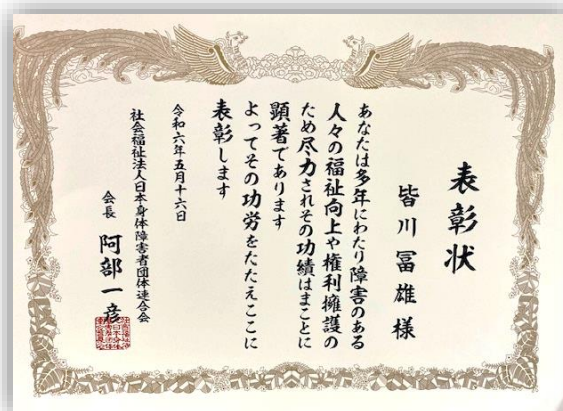 表彰状
皆川冨雄様
あなたは多年にわたり障害のある
人々の福祉向上や権利擁護の
ため尽力されその功績はまことに
顕著であります
よってその功労をたたえここに
表彰します
令和六年五月十六日
社会福祉法人日本身体障害者団体連合会
会長 阿部一彦